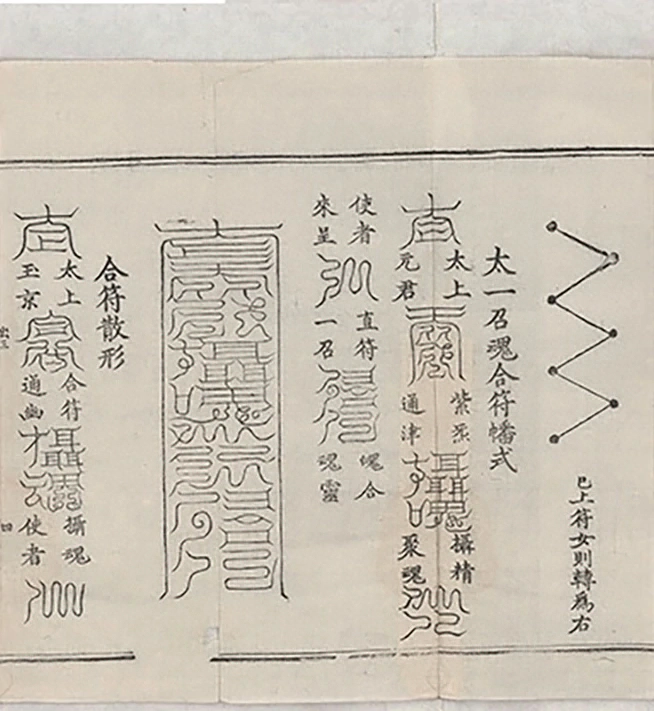 已上符女則轉爲右
太一召魂合符幡式
太上
元君
紫炁
通津
攝精
聚魂
使者
來呈
直符
一召
魄合
魂靈
合符散形
太上
玉京
合符
通幽
攝魂
使者
四